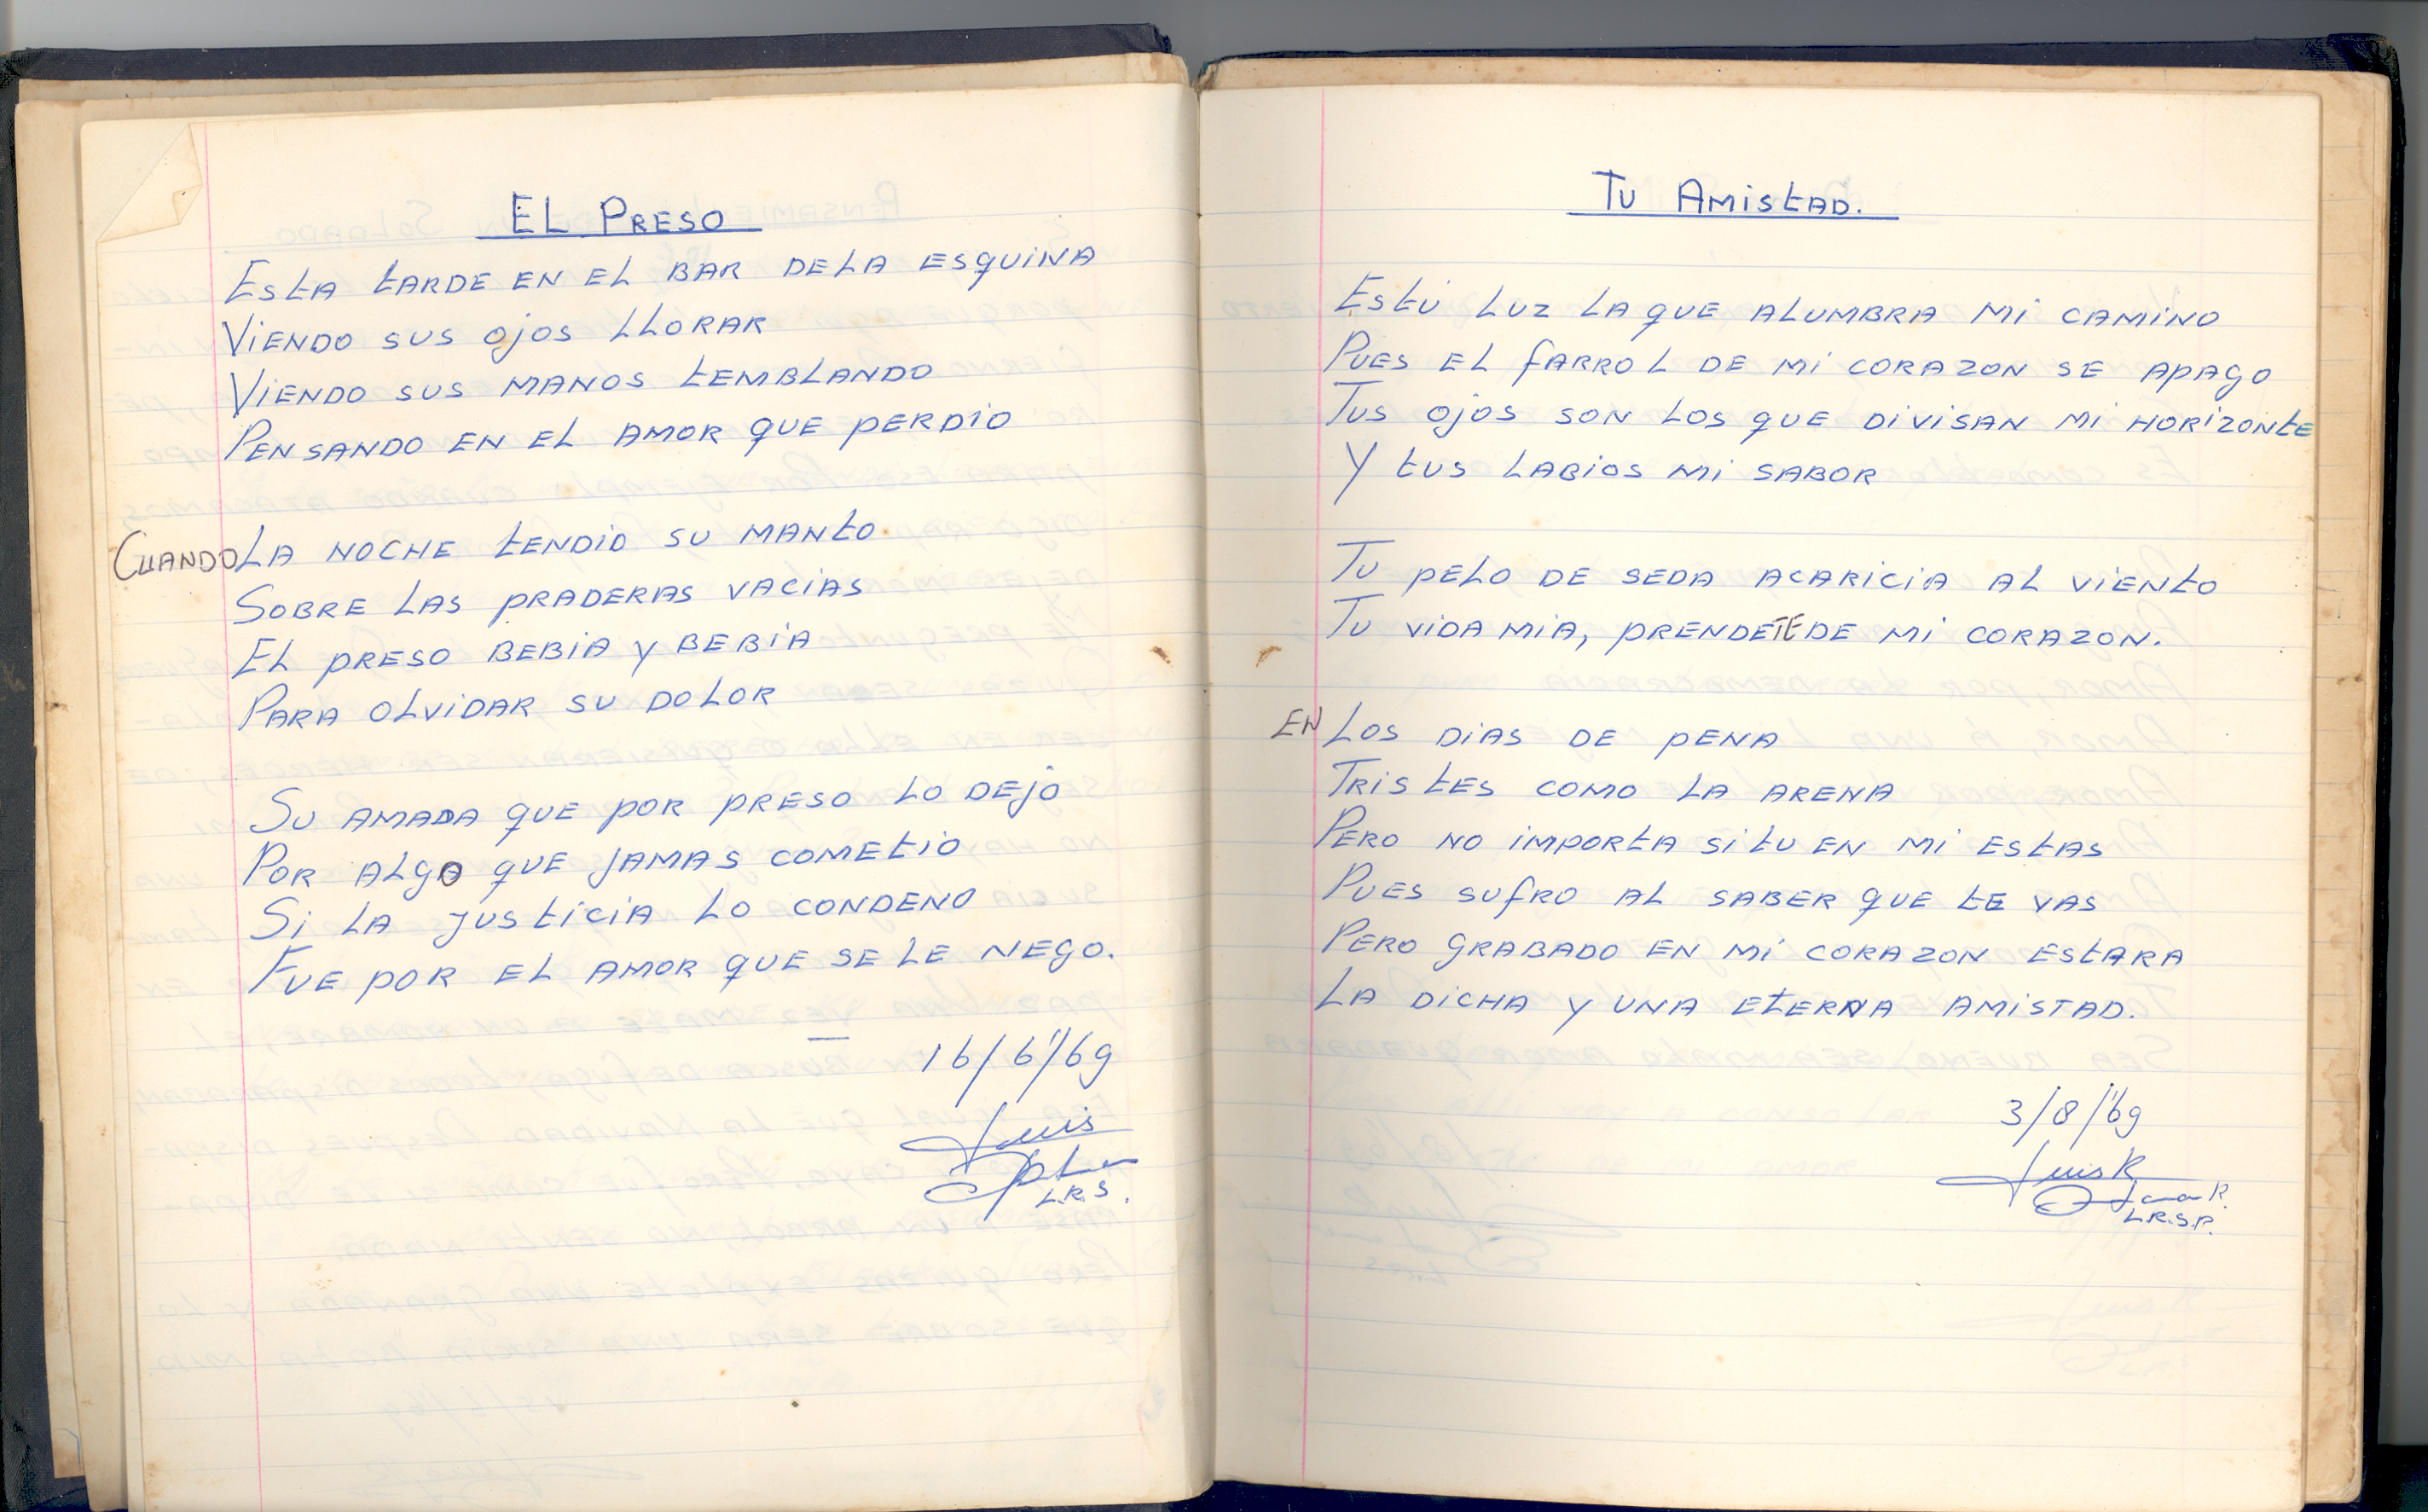 EL PRESO
ESTA TARDE EN EL BAR DE LA ESQUINA
VIENDO SUS OJOS LLORAR
VIENDO SUS MANOS TEMBLANDO
PENSANDO EN EL AMOR QUE PERDIO
CUANDO LA NOCHE TENDIO SU MANTO
SOBRE LAS PRADERAS VACIAS
EL PRESO BEBIA Y BEBIA
PARA OLVIDAR SU DOLOR
SU AMADA QUE POR PRESO LO DEJO
POR ALGO QUE JAMAS COMETIO
SI LA JUSTICIA LO CONDENO
FUE POR EL AMOR QUE SE LE NEGO.
16/6/69
Luis
L.R.S.
TU AMISTAD.
ES TÚ LUZ LA QUE ALUMBRA MI CAMINO
PUES EL FARROL DE MI CORAZON SE APAGO
TUS OJOS SON LOS QUE DIVISAN MI HORIZONTE
Y TUS LABIOS MI SABOR
TU PELO DE SEDA ACARICIA AL VIENTO
TU VIDA MIA, PRENDETE DE MI CORAZON.
EN LOS DIAS DE PENA
TRISTES COMO LA ARENA
PERO NO IMPORTA SI TU EN MI ESTAS
PUES SUFRO AL SABER QUE TE VAS
PERO GRABADO EN MI CORAZON ESTARA
LA DICHA Y UNA ETERNA AMISTAD.
3/8/69
Luis R
L.R.S.P.